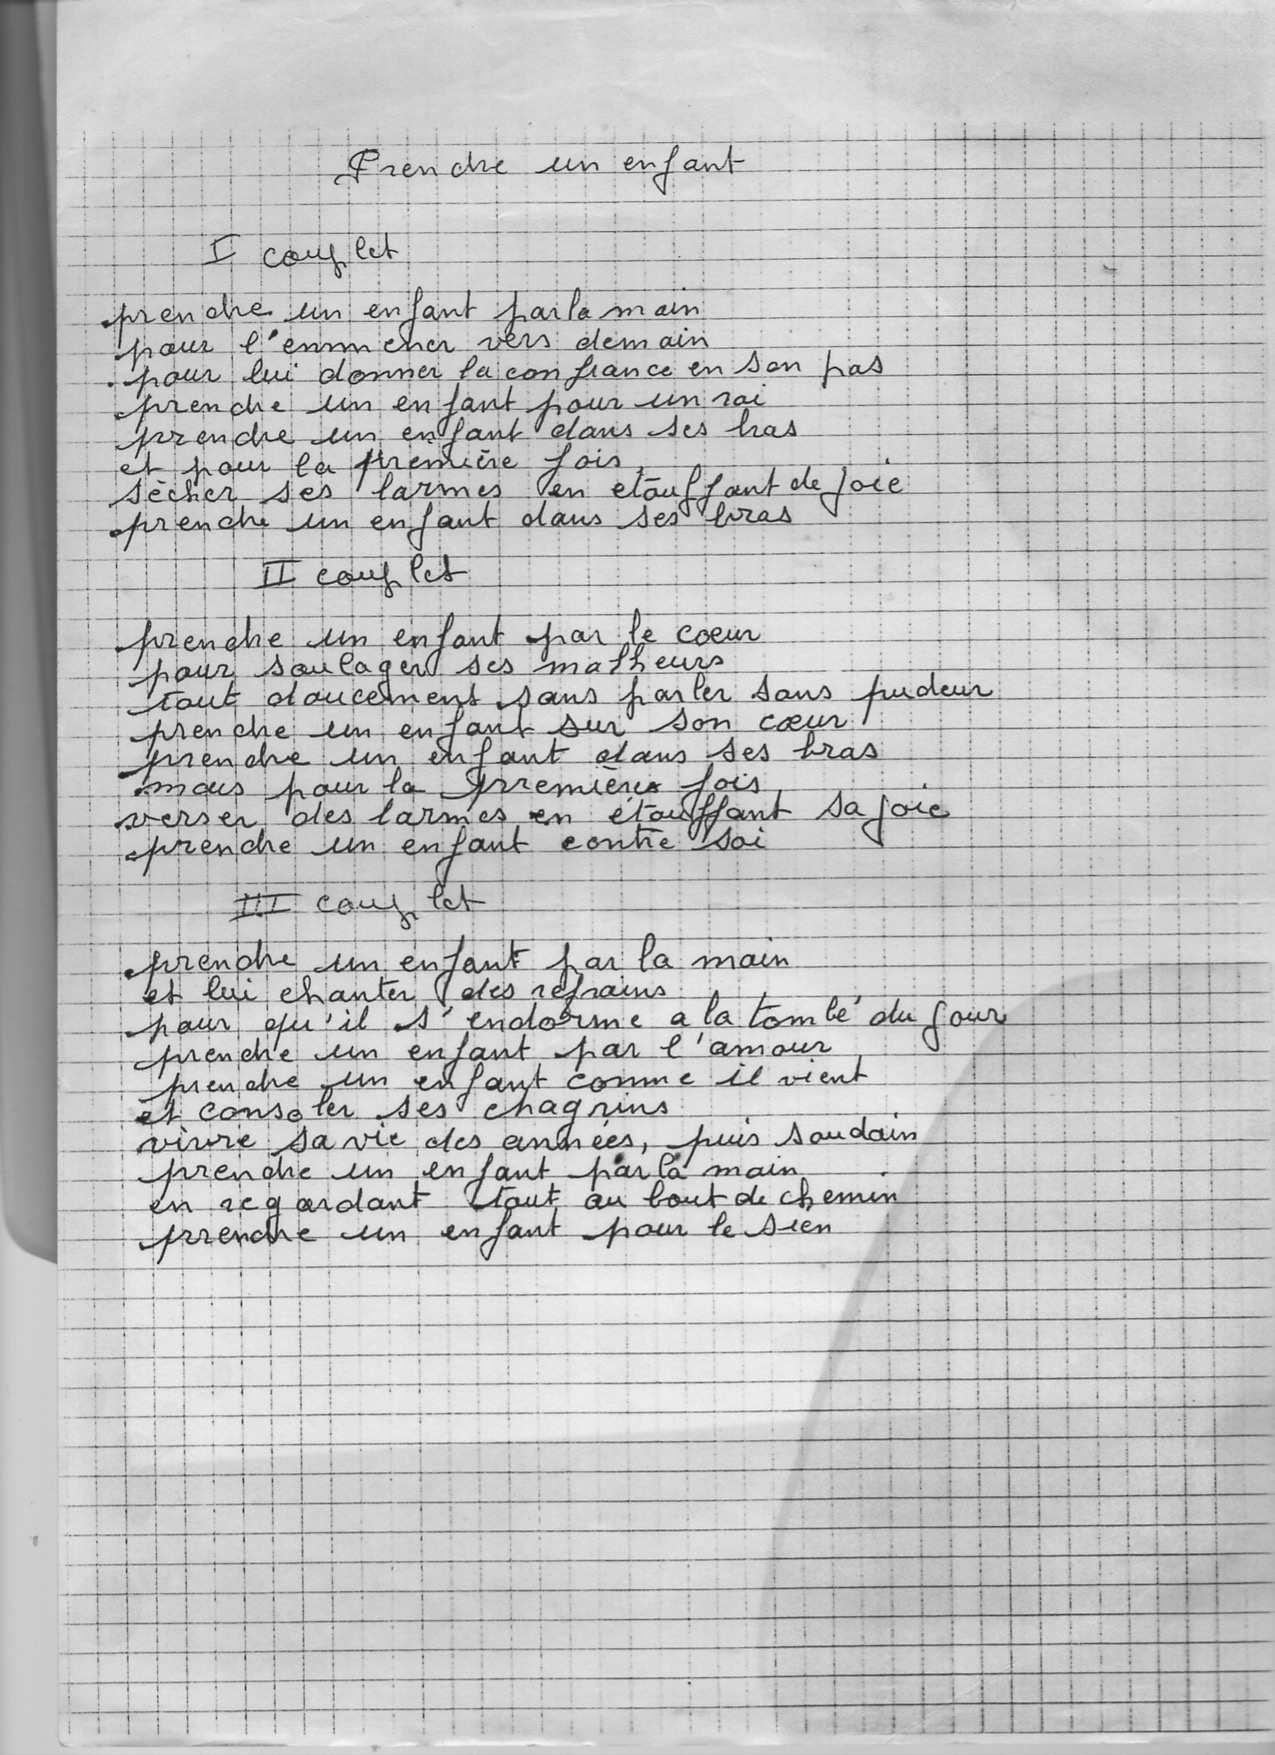 Prendre un enfant
I couplet
prendre un enfant par la main
pour l'emmener vers demain
pour lui donner la confiance en son pas
prendre un enfant pour un roi
prendre un enfant dans ses bras
et pour la première fois
sècher ses larmes en etouffant de joie
prendre un enfant dans ses bras
II couplet
prendre un enfant par le cœur
pour soulager ses malheurs
tout doucement sans parler sans pudeur
prendre un enfant sur son cœur
prendre un enfant dans ses bras
mais pour la première fois
verser des larmes en étouffant sa joie
prendre un enfant contre soi
III couplet
prendre un enfant par la main
et lui chanter des refrains
pour qu'il s'endorme a la tombé du jour
prendre un enfant par l'amour
prendre un enfant comme il vient
et consoler ses chagrins
vivre sa vie des années, puis soudain
prendre un enfant par la main
en regardant tout au bout de chemin
prendre un enfant pour le sien